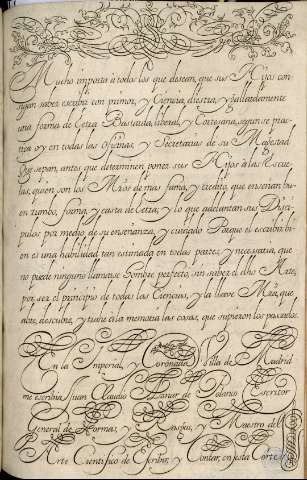 Mucho importa à todos los que desean, que sus Hijos con
sigan saber escribir con primor, y Ciencia, diestra, y gallardamente
una forma de Letra Bastarda, liberal, y Cortesana, segun se prac
tica oy en todas las Oficinas, y Secretarias de su Magestad
Que sepan, antes que determinen poner sus Hijos à las Escue
las, quien son los Mros de mas fama, y credito, que enseñan bu
en rumbo, forma, y casta de Letra, y lo que adelantan sus Disci
pulos por medio de su enseñanza, y cuidado Porque el escribir bi
en es una habilidad tan estimada en todas partes, y necesaria, que
no puede ninguno llamarse hombre perfecto, sin saber el dho Arte,
por ser el principio de todas las Ciencias, y la llave Mra, que
abre, descubre, y trahe à la memoria las cosas, que supieron los pasados.
En la Imperial, y Coronada Villa de Madrid
me escribia Juan Claudio Aznar de Polanco Escritor
General de Formas, y Maestro del
Arte Cientifico de Escribir, y Contar, en esta Corte